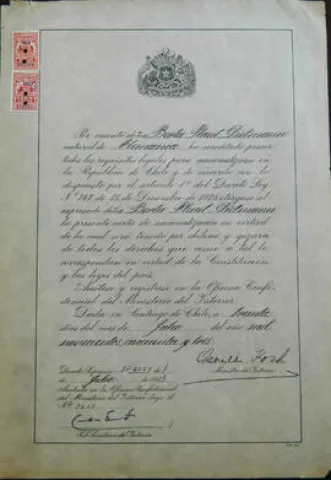 Por cuanto
natural de Alemania ha acreditado poseer
todos los requisitos legales para nacionalizarse en
la República de Chile y de acuerdo con lo
dispuesto por el artículo 1º del Decreto Ley
Nº 747 de 15 de Diciembre de 1925 otorgo al
expresado
la presente carta de nacionalización en virtud
de la cual será tenido por chileno y gozará
de todos los derechos que como a tal le
correspondan en virtud de la Constitución
y las leyes del país.
Anótese y regístrese en la Oficina Confi-
dencial del Ministerio del Interior.
Dada en Santiago de Chile, a
días del mes de Julio del año mil
novecientos cincuenta y tres
Ministro del Interior
Decreto Supremo Nº
de Julio de 19
Anotada en la Oficina Confidencial
del Ministerio del Interior bajo el
Nº
Sub-Secretario del Interior